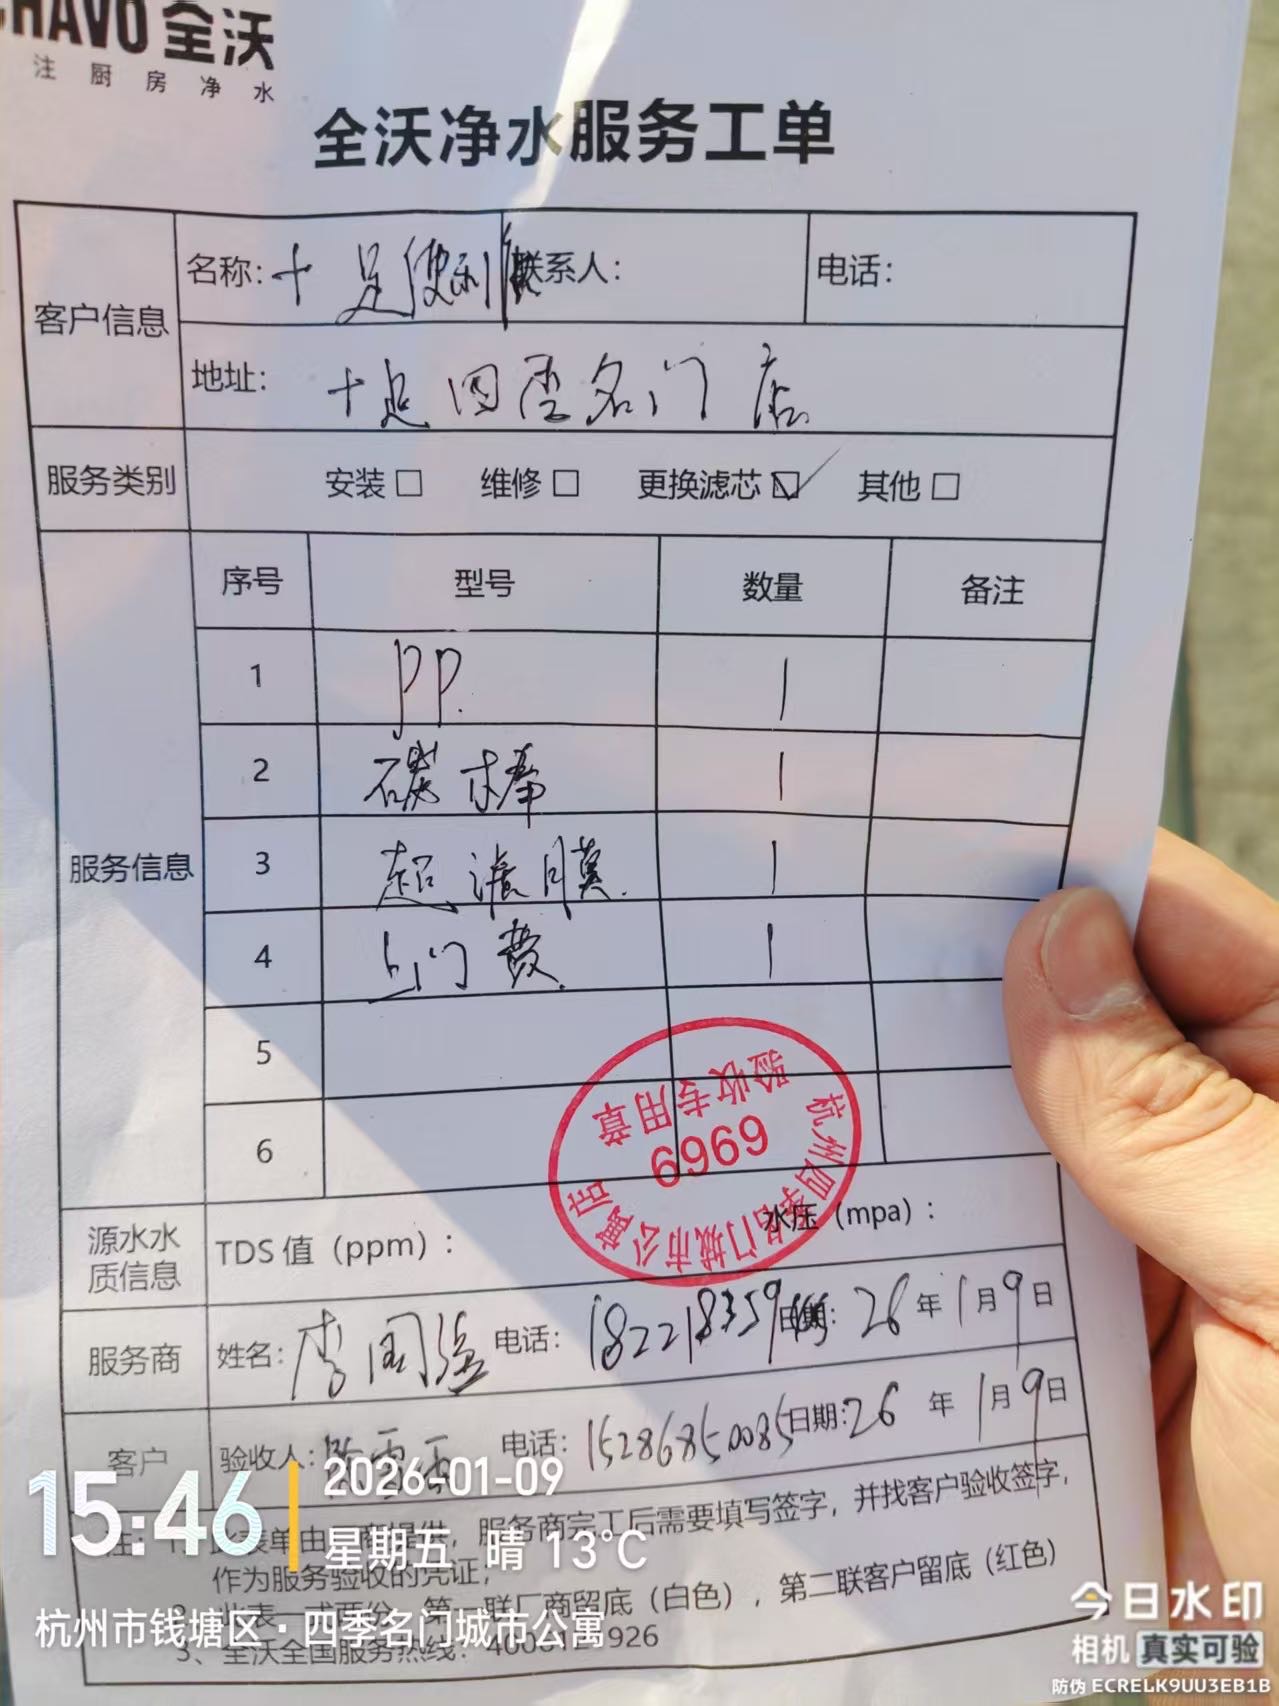 CHAVO 全沃
注厨房净水
全沃净水服务工单
客户信息
名称: 十足便利 联系人: 电话:
地址: 十足四季名门店
服务类别 安装 维修 更换滤芯 ✓ 其他
服务信息
序号 型号 数量 备注
1 PP. 1
2 碳棒 1
3 超滤膜. 1
4 上门费. 1
5
6
杭州四季名门城市公寓店
6969
验收专用章
源水水质信息 TDS 值（ppm）: 水压（mpa）:
服务商 姓名: 李国强 电话: 日期: 26 年 1 月 9 日
客户 验收人: 电话: 15286850085 日期: 26 年 1 月 9 日
表单由 商提供，服务商完工后需要填写签字，并找客户验收签字，
作为服务验收的凭证；
2 此表一式两份，第一联厂商留底（白色），第二联客户留底（红色）
3、全沃全国服务热线：
15:46
2026-01-09
星期五 晴 13°C
杭州市钱塘区·四季名门城市公寓
今日水印
相机 真实可验
防伪 ECRELK9UU3EB1B